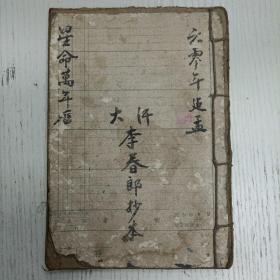 六零年造孟
大汗
李春郎抄本
星命萬年